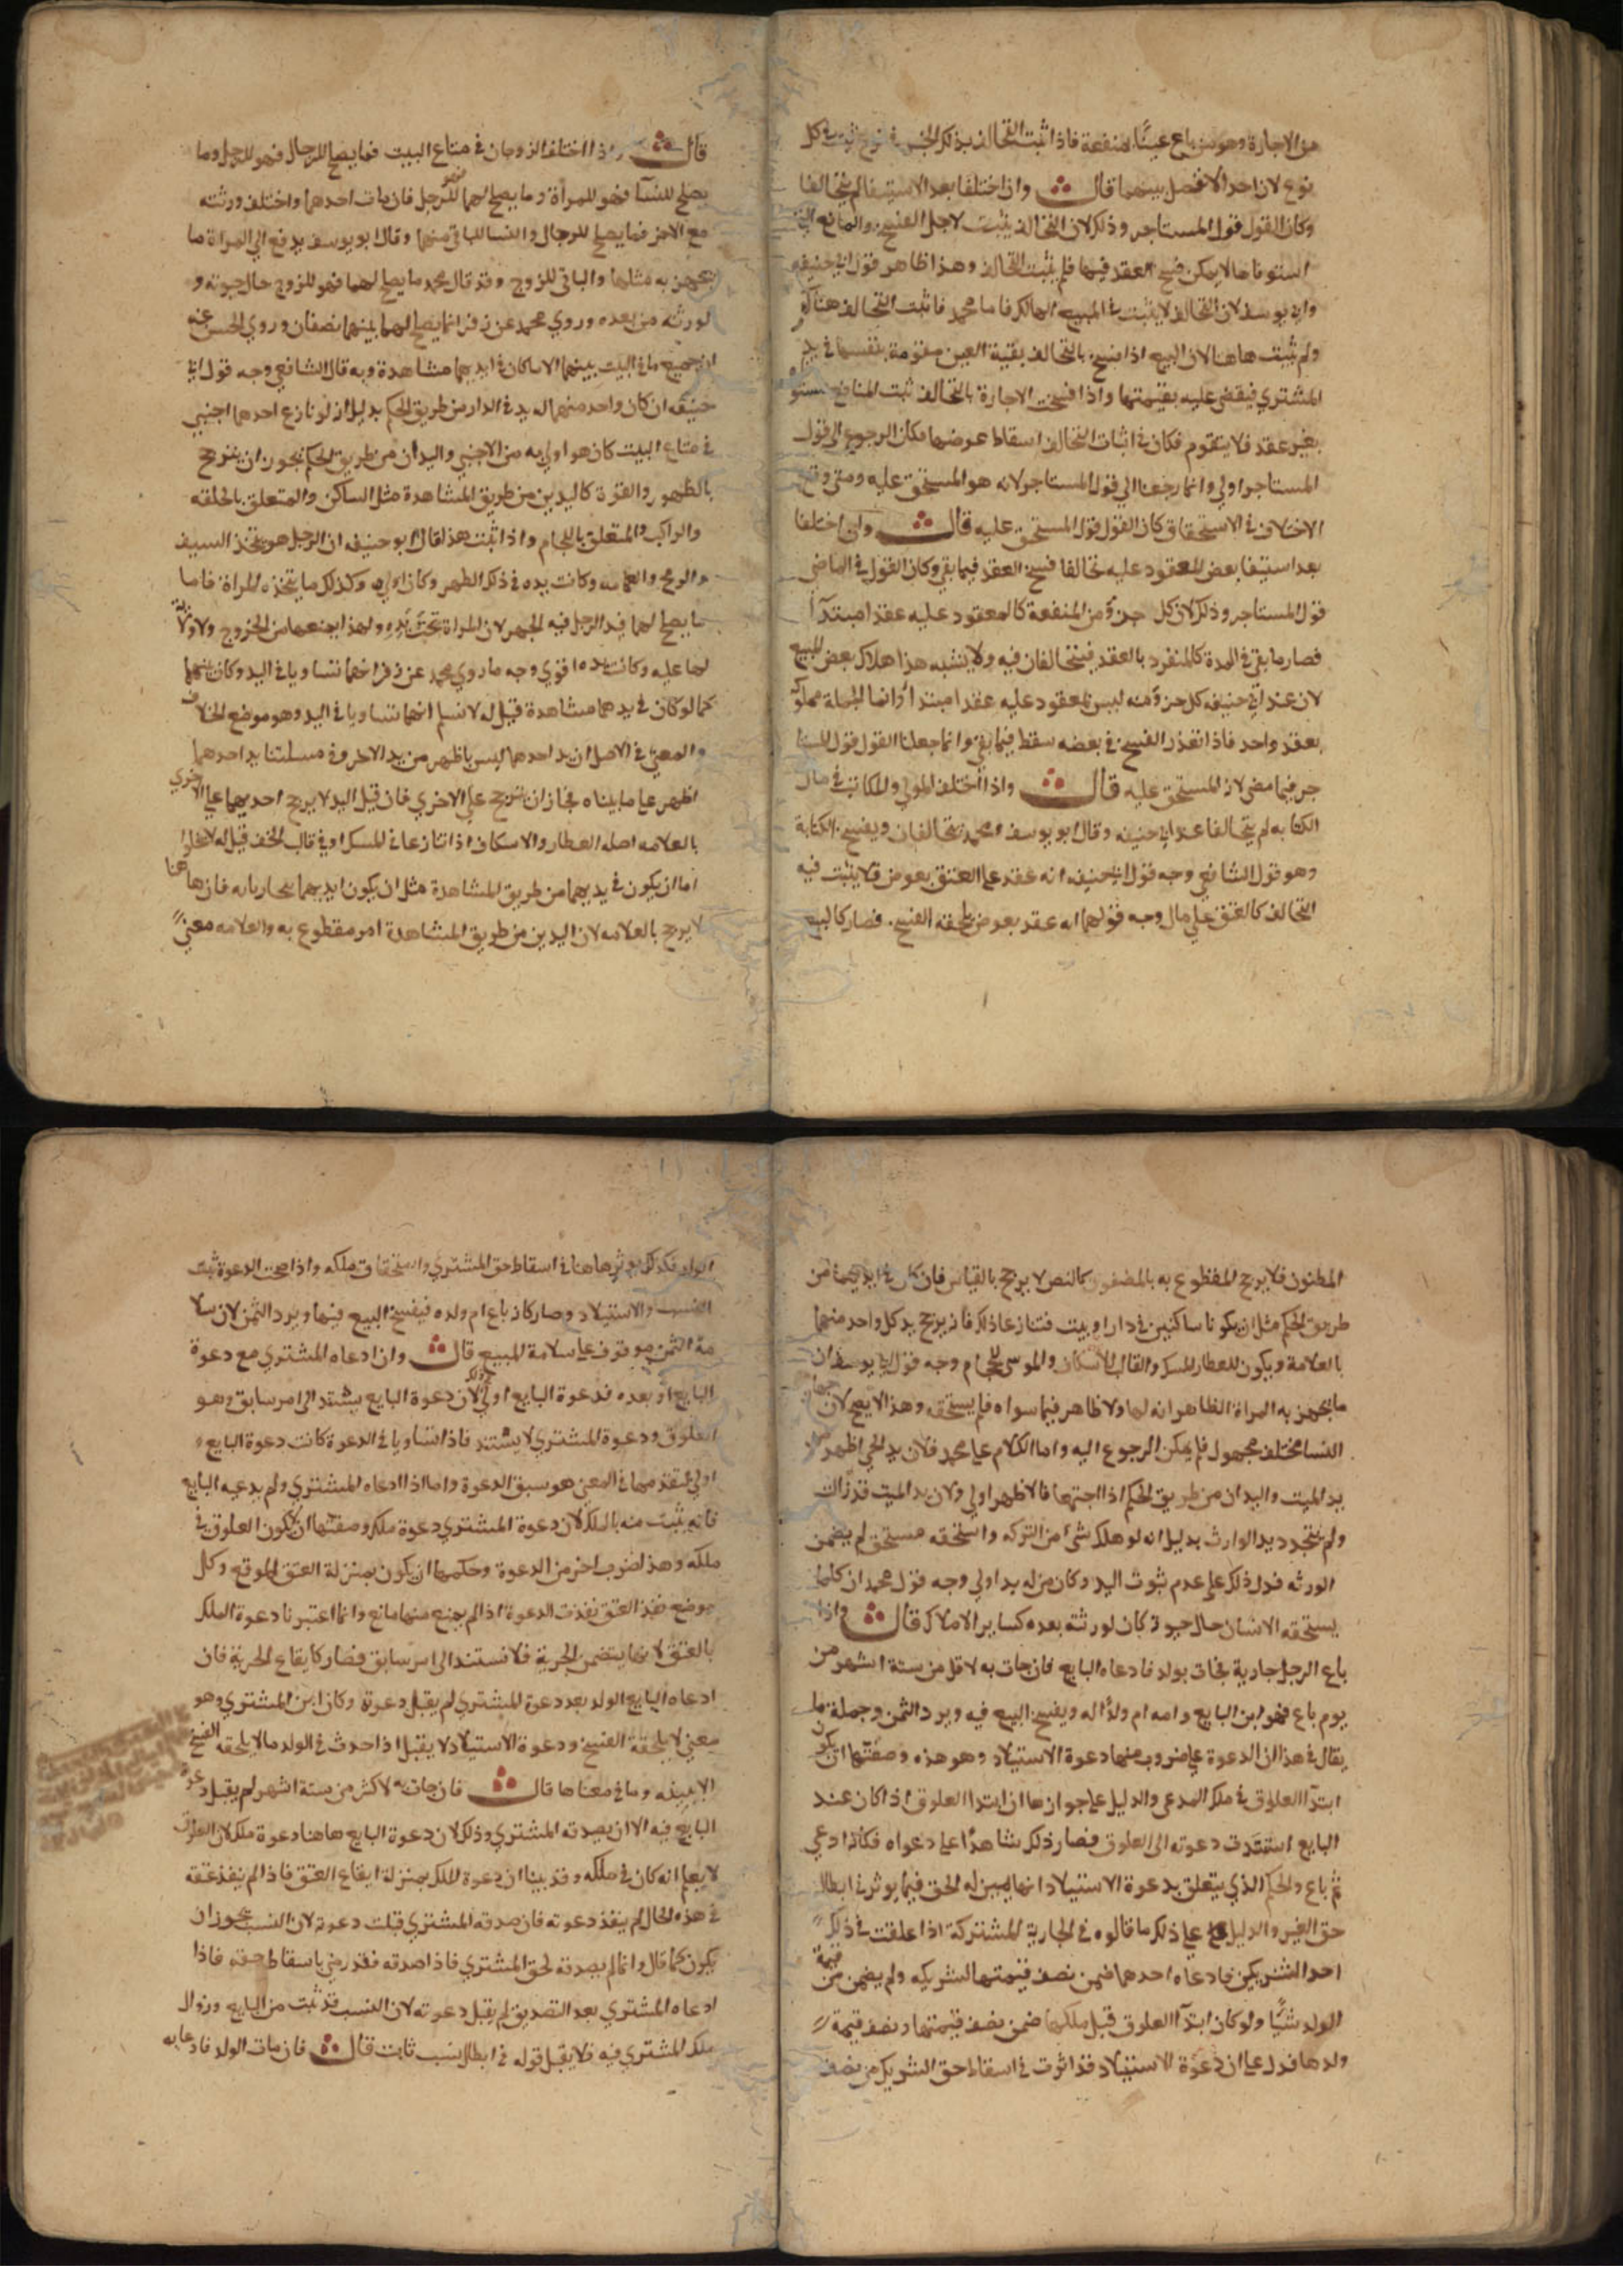 من الاجارة وهو من باع عينًا بمنفعة فاذا ثبت التحالف بذلك الجنس في نوع ثبت في كل
نوع لان احد الا فصل بينهما قال وان اختلفا بعد الاستيفا لم يتحالفا
وكان القول قول المستاجر وذلك لان التحالف يثبت لاجل الفسخ والمنافع التي
استوفاها لا يمكن فسخ العقد فيها فلم يثبت التحالف وهذا ظاهر قول ابي حنيفه
وابي يوسف لان التحالف لا يثبت في المبيع الهالك فاما محمد فاثبت التحالف هناك
ولم يثبت هاهنا لان البيع اذا فسخ بالتحالف بقية العين متقومة بنفسها في يد
المشتري فيقضى عليه بقيمتها واذا فسخت الاجارة بالتحالف ثبت المنافع مستوفاه
بغير عقد فلا يتقوم فكان في اثبات التحالف اسقاط عوضها فكان الرجوع الى قول
المستاجر اولي وانما رجعنا الي قول المستاجر لانه هو المستحق عليه ومتى وقع
الاختلاف في الاستحقاق كان القول قول المستحق عليه قال وان اختلفا
بعد استيفا بعض المعقود عليه تحالفا فسخ العقد فيما بقي وكان القول في الماضي
قول المستاجر وذلك لان كل جزؤ من المنفعة كالمعقود عليه عقدا مبتدآ
فصار ما بقي في المدة كالمنفرد بالعقد فيتحالفان فيه ولا يشبه هذا هلاك بعض المبيع
لان عند ابي حنيفه كل جزؤ منه ليس بمعقود عليه عقدا مبتدأ وانما الجملة مملوكه
بعقد واحد فاذا تعذر الفسخ في بعضه سقط فيما بقي وانما جعلنا القول قول المستا
جر فيما مضى لانه المستحق عليه قال واذا اختلف المولي والمكاتب في مال
الكتابه لم يتحالفا عند ابي حنيفه وقال ابو يوسف ومحمد يتحالفان ويفسخ الكتابة
وهو قول الشافعي وجه قول ابي حنيفه انه عقد على العتق بعوض فلا يثبت فيه
التحالف كالعتق علي مال وجه قولهما انه عقد بعوض يلحقه الفسخ فصار كالبيع
قال واذا اختلف الزوجان في متاع البيت فما يصلح للرجال فهو للرجل وما
يصلح للنسآ فهو للمرأة وما يصلح لهما فهو للرجل فان مات احدهما واختلف ورثته
مع الاخر فما يصلح للرجال والنسا للباقي منهما وقال ابو يوسف يدفع الي المراة ما
يجهز به مثلها والباقي للزوج وقد قال محمد ما يصلح لهما فهو للزوج حال حيوته و
لورثته من بعده وروي محمد عن زفر انما يصلح لهما بينهما نصفان وروي الحسن عنه
ان جميع ما في البيت بينهما الا ما كان في ايديهما مشاهدة وبه قال الشافعي وجه قول ابي
حنيفه ان كان واحد منهما له يد في الدار من طريق الحكم بدليل انه لو نازع احدهما اجنبي
في متاع البيت كان هو اولي به من الاجنبي واليدان من طريق الحكم يجوز ان يترجح
بالظهور والقوة كاليدين من طريق المشاهدة مثل الساكن والمتعلق بالحلقه
والراكب والمتعلق باللجام واذا ثبت هذا قال ابو حنيفه ان الرجل هو يتخذ السيف
والرمح والعمامه وكانت يده في ذلك اظهر وكان اولي وكذلك ما يتخذه المراة فاما
ما يصلح لهما فيد الرجل فيه اظهر لان المراة تحت يده ولهذا يمنعها من الخروج ولا ولاية
لها عليه وكانت يده اقوي وجه ما روي محمد عن زفر انهما تساويا في اليد وكان بينهما
كما لو كان في يدهما مشاهدة قيل له لا نسلم انهما تساويا في اليد وهو موضع الخلاف
والمعنى في الاصل ان يد احدهما ليس باظهر من يد الاخر وفي مسلتنا يد احدهما
اظهر علي ما بيناه فجاز ان يترجح علي الاخري فان قيل اليد لا يرجح احديهما علي الاخري
بالعلامه اصله العطار والاسكاف اذا تنازعا في المسك او في قالب الخف قيل له لا يخلوا
اما ان يكون في يديهما من طريق المشاهدة مثل ان يكون ايديهما يتجاربانه فان هاهنا
لا يرجح بالعلامه لان اليدين من طريق المشاهدة امر مقطوع به والعلامه معنى
المظنون فلا يرجح المقطوع به بالمظنون كالنص لا يرجح بالقياس فان كان في ايديهما من
طريق الحكم مثل ان يكونا ساكنين في دار او بيت فتنازعا ذلك فانه يرجح يد كل واحد منهما
بالعلامة ويكون للعطار المسك والقالب للاسكاف والموسى للحجام وجه قول ابي يوسف ان
ما يجهز به المراة الظاهر انه لها ولا ظاهر فيما سواه فلم يستحقه وهذا لا يصح لان جهاز
النسا مختلف مجهول فلم يمكن الرجوع اليه واما الكلام علي محمد فلان يد الحي اظهر من
يد الميت واليدان من طريق الحكم اذا اجتمعا فالاظهر اولي ولان يد الميت قد زالت
ولم يتجدد يد الوارث بدليل انه لو هلك شئ من التركه واستحقه مستحق لم يضمن
الورثه فدل ذلك علي عدم ثبوت اليد وكان من له يد اولي وجه قول محمد ان كلما
يستحقه الانسان حال حيوته كان لورثته بعده كساير الاملاك قال واذا
باع الرجل جارية فجات بولد فادعاه البايع فان جات به لاقل من ستة اشهر من
يوم باع فهو ابن البايع وامه ام ولدٍ له ويفسخ البيع فيه ويرد الثمن وجملة ما
يقال في هذا ان الدعوة علي ضروب منها دعوة الاستيلاد وهو هذه وصفتها ان يكون
ابتدآ العلوق في ملك المدعي والدليل علي جوازها ان ابتدا العلوق اذا كان عند
البايع استندت دعوته الى العلوق فصار ذلك شاهدًا علي دعواه فكانه ادعي
ثم باع والحكم الذي يتعلق بدعوة الاستيلاد انها بمنزله الحق فيما يوثر في ابطال
حق الغير والدليل علي ذلك ما قالوه في الجارية المشتركة اذا علقت في ذلك
احد الشريكين فادعاه احدهما ضمن نصف قيمتها لشريكه ولم يضمن من قيمة
الولد شيًا ولو كان ابتدآ العلوق قبل ملكهما ضمن نصف قيمتها ونصف قيمة
ولدها فدل علي ان دعوة الاستيلاد قد اثرت في اسقاط حق الشريك من نصف
الولد فكذلك يوثر هاهنا في اسقاط حق المشتري واستحقاق ملكه واذا صحت الدعوة ثبت
النسب والاستيلاد وصار كانه باع ام ولده فيفسخ البيع فيها ويرد الثمن لان سلا
مة الثمن موقوف علي سلامة المبيع قال وان ادعاه المشتري مع دعوة
البايع او بعده فدعوة البايع اولي وذلك لان دعوة البايع يستند الى امر سابق وهو
العلوق ودعوة المشتري لا يستند فاذا تساويا في الدعوة كانت دعوة البايع
اولي لتقدمها في المعنى هو سبق الدعوة واما اذا ادعاه المشتري ولم يدعيه البايع
فانه يثبت منه بالملك لان دعوة المشتري دعوة ملك وصفتها ان لا يكون العلوق في
ملكه وهذا ضرب اخر من الدعوة وحكمها ان يكون بمنزلة العتق الموقع وكل
موضع نفذ العتق نفذت الدعوة اذا لم يمنع منها مانع وانما اعتبرنا دعوة الملك
بالعتق لانها يتضمن الحرية فلا تستند الى امر سابق فصار كايقاع الحرية فان
ادعاه البايع الولد بعد دعوة المشتري لم يقبل دعوة وكان ابن المشتري وهو
معنى لا يلحقه الفسخ ودعوة الاستيلاد لا يقبل اذا حدث في الولد ما لا يلحقه الفسخ
وما في معناها قال فان جات به لاكثر من ستة اشهر لم يقبل دعوة
البايع فيه الا ان يصدقه المشتري وذلك لان دعوة البايع هاهنا دعوة ملك لان العلوق
لا يعلم انه كان في ملكه وقد بينا ان دعوة الملك بمنزلة ايقاع العتق فاذا لم ينفذ عتقه
في هذه الحال لم ينفذ دعوته فان صدقه المشتري قبلت دعوته لان النسب يجوز ان
يكون كما قال وانما لم يصدقه لحق المشتري فاذا صدقه فقد رضي باسقاط حقه فاذا
ادعاه المشتري بعد التصديق لم يقبل دعوته لان النسب قد ثبت من البايع وزوال
ملك المشتري فيه فلا يقبل قوله في ابطال نسب ثابت قال فان مات الولد فادعا به